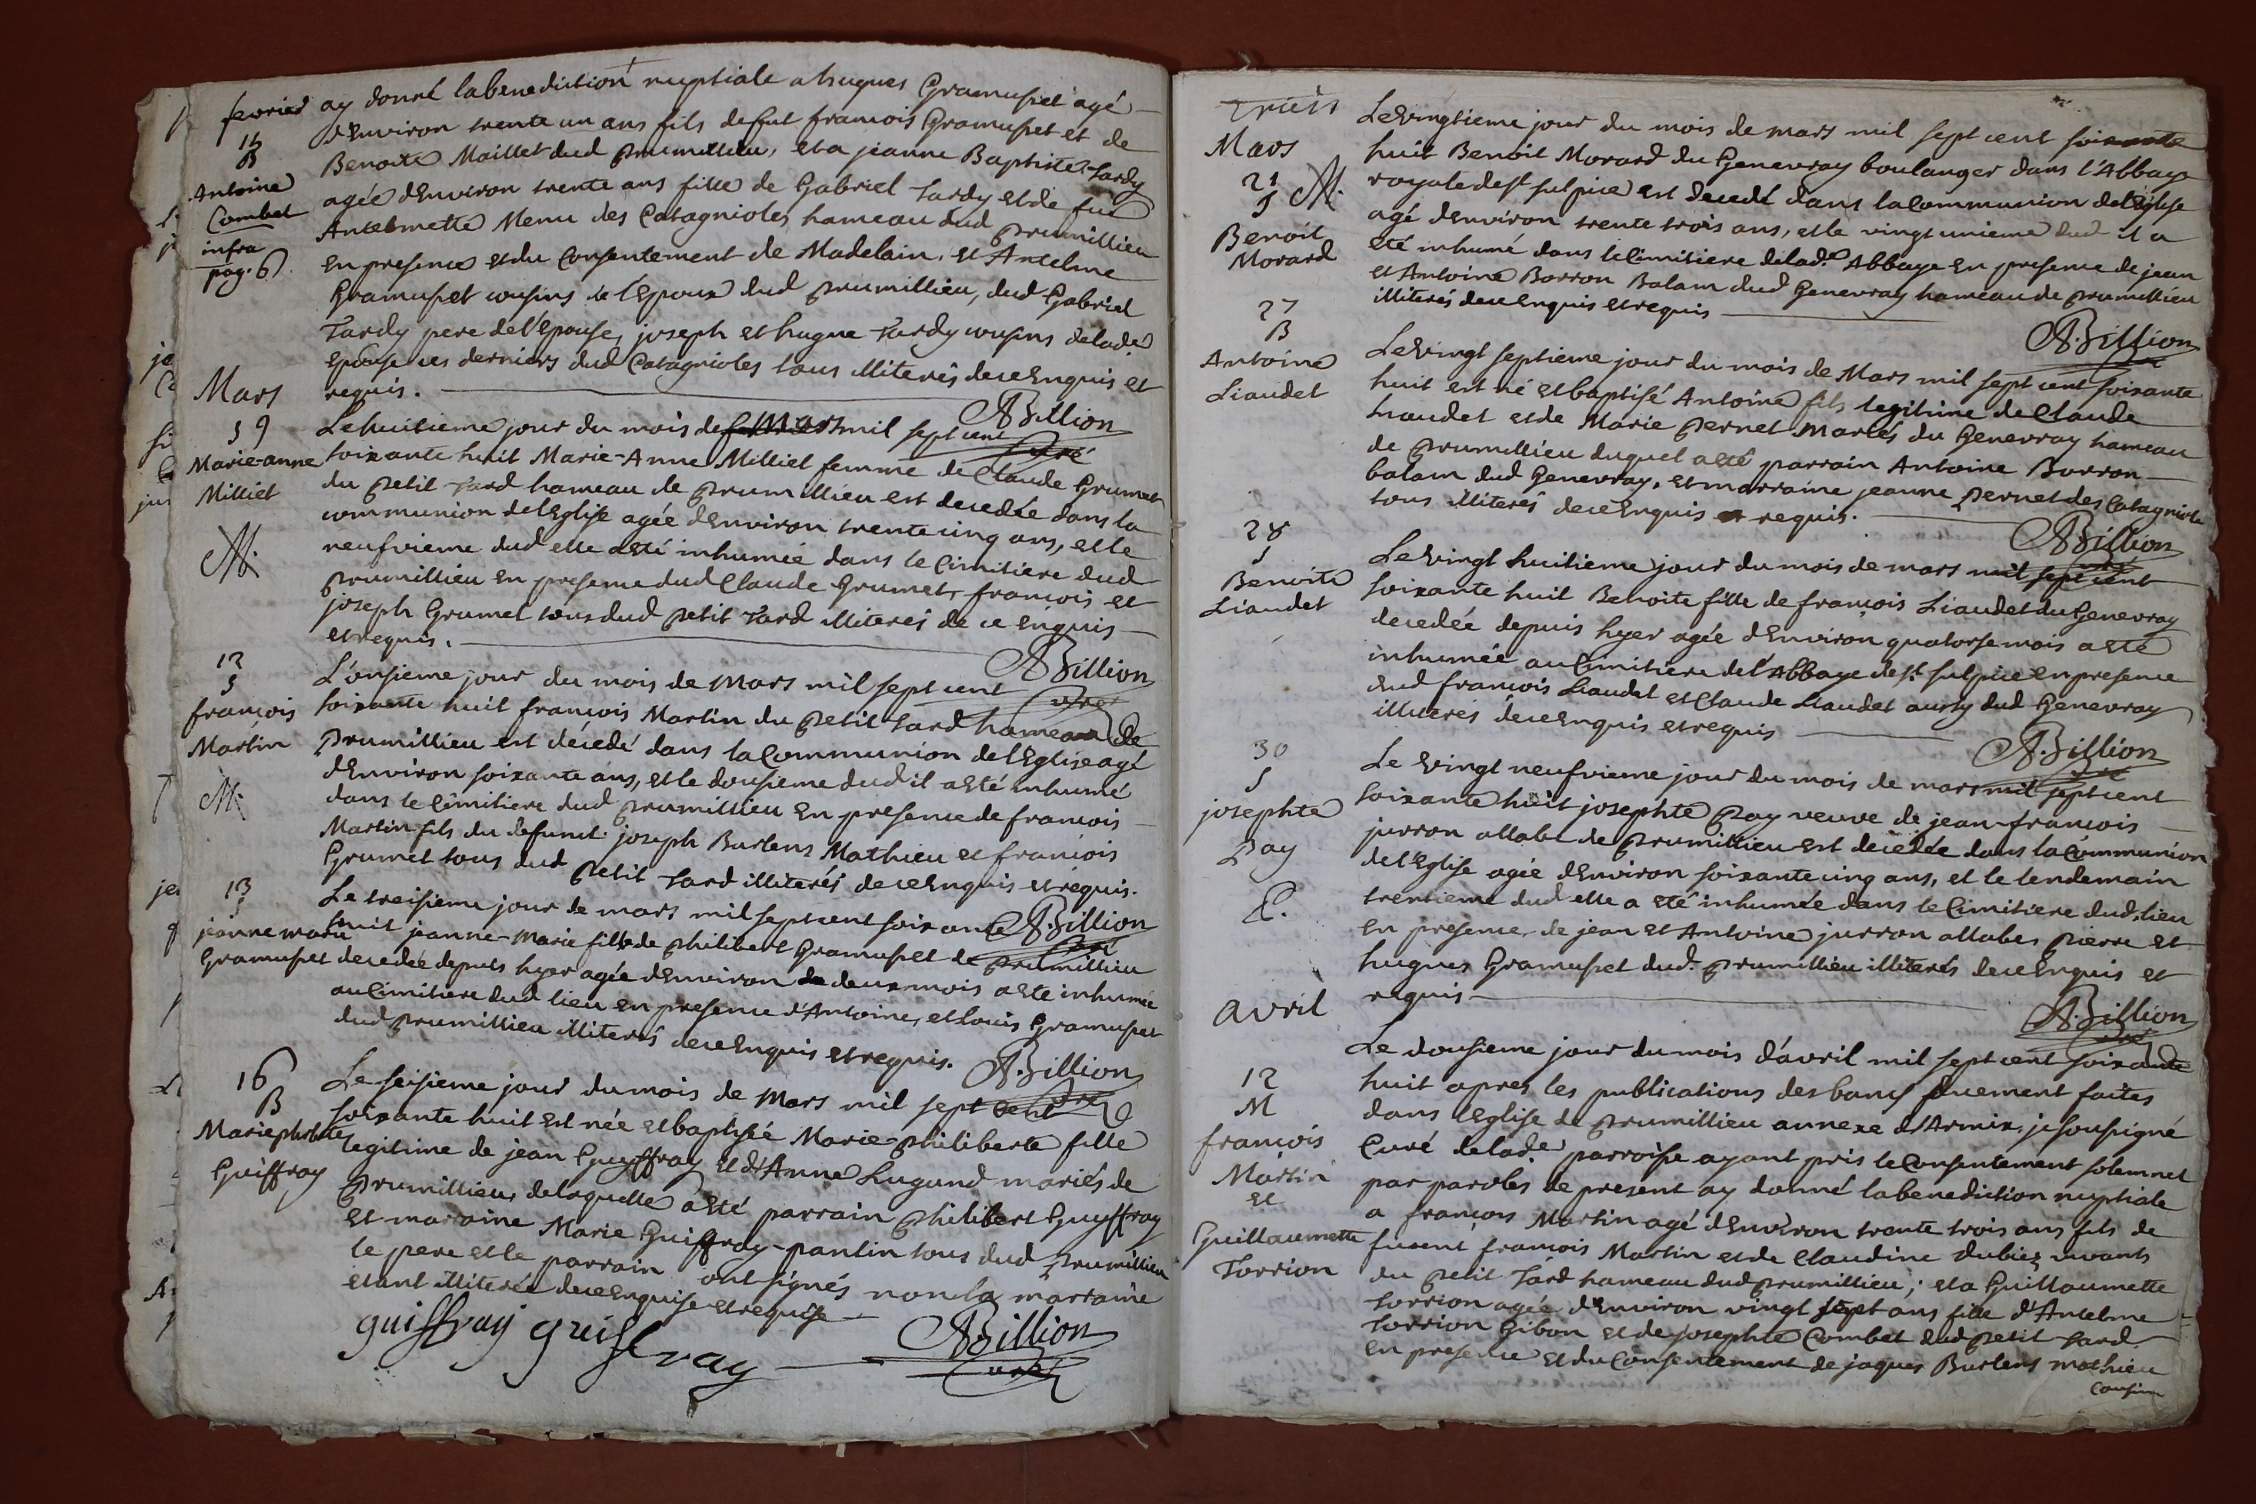 fevrier
15
B
Antoine
Combet
infra
pag. 6
ay donné la benediction nuptiale a hugues Gramuset agé
d'Environ trente un ans fils de fut francois Gramuset et de
Benoite Maillet dud prumillieu, et a jeanne Baptiste Tardy
agée d'Environ trente ans fille de Gabriel Tardy et de fue
Antelmette Menu des Catagnioles hameau dud prumillieu
en presence et du Consentement de Madelain, et Antelme
Gramuset cousins de l'Epoux dud prumillieu, dud Gabriel
Tardy pere de l'épouse, joseph et hugue Tardy cousins delade
Epouse ces derniers dud Catagnioles tous illiterés de ce Enquis et
requis.
ABillion
Curé
Mars
S 9
Marie-anne
Milliet
M.
Le huitieme jour du mois de Mars mil sept cent
soixante huit Marie-Anne Milliet femme de Claude Grumet
du petit Tard hameau de prumillieu est decedée dans la
communion de l'Eglise agée d'Environ trente cinq ans, et le
neufvieme dud elle a été inhumée dans le Cimitiere dud
prumillieu en presence dud Claude Grumet, francois et
joseph Grumet tous dud petit Tard illiterés de ce enquis
et requis.
ABillion
Curé
12
S
francois
Martin
M.
L'onsieme jour du mois de Mars mil sept cent
soixante huit francois Martin du petit Tard hameau de
prumillieu est décedé dans la Communion de l'Eglise agé
d'Environ soixante ans, et le dousieme dud il a été inhumé
dans le Cimitiere dud prumillieu en presence de francois
Martin fils du defunct. joseph Burlens Mathieu et francois
Grumet tous dud petit Tard illiterés de ce Enquis et requis.
ABillion
Curé
13
S
jeanne marie
Gramuset
Le treisieme jour de mars mil sept cent soixante
huit jeanne-Marie fille de philibert Gramuset de prumillieu
decedée depuis hyer agée d'Environ de deux mois a été inhumée
au Cimitiere dud lieu en presence d'Antoine, et Louis Gramuset
dud prumillieu illiterés de ce Enquis et requis.
A.Billion
Curé
16
B
Marie philiberte
Guiffray
Le seisieme jour du mois de Mars mil sept cent
soixante huit est née et baptisée Marie-philiberte fille
legitime de jean Guyffray et d'Anne Lugand mariés de
prumillieu, de laquelle a été parrain philibert Guyffray
et marraine Marie Guiffray-pantin tous dud prumillieu
le pere et le parrain ont signés non la marraine
etant illiterée de ce Enquise et requise
guiffray guiffray
ABillion
Curé
Mars
21
S M.
Benoit
Morard
Le Vingtieme jour du mois de mars mil sept cent soixante
huit Benoit Morard du Genevray boulanger dans l'Abbaye
royale de st sulpice est decedé dans la Communion de l'Eglise
agé d'Environ trente trois ans, et le vingt unieme dud il a
été inhumé dans le Cimitiere delade Abbaye en presence de jean
et Antoine Borron Balam dud Genevray hameau de prumillieu
illiterés de ce enquis et requis
A.Billion
27
B
Antoine
Liaudet
Le Vingt septieme jour du mois de Mars mil sept cent soixante
huit est né et baptisé Antoine fils legitime de Claude
Liaudet et de Marie pernet Mariés du Genevray hameau
de prumillieu duquel a été parrain Antoine Borron
balam dud Genevray, et marraine jeanne pernet des Catagniole
tous illiterés de ce Enquis et requis.
ABillion
Curé
28
S
Benoite
Liaudet
Le Vingt huitieme jour du mois de mars mil sept cent
soixante huit Benoite fille de francois Liaudet du Genevray
decedée depuis hyer agée d'Environ quatorse mois a été
inhumée au Cimitiere de l'Abbaye de st sulpice en presence
dud francois Liaudet et Claude Liaudet dud Genevray
illiterés de ce enquis et requis
A.Billion
30
S
josephte
Pay
Le Vingt neufvieme jour du mois de mars mil sept cent
soixante huit josephte Pay veuve de jean-francois
jurron allabe de prumillieu est decedée dans la Communion
de l'Eglise agée d'Environ soixante cinq ans, et le lendemain
trentieme dud elle a été inhumée dans le Cimitiere dud lieu
en presence de jean et Antoine jurron allabes pierre et
hugues Gramuset dud. prumillieu illiterés de ce Enquis et
requis
A.Billion
Curé
avril
12
M
francois
Martin
et
Guillaumette
Torrion
Le dousieme jour du mois d'avril mil sept cent soixante
huit apres les publications des bancs duement faites
dans l'Eglise de prumillieu annexe d'Armix, je sousigné
Curé delade parroisse ayant pris le Consentement solemnel
par paroles de present ay donné la benediction nuptiale
a francois Martin agé d'Environ trante trois ans fils de
furent francois Martin et de Claudine dubiez vivants
du petit Tard hameau dud prumillieu; et a Guillaumette
Torrion agée d'environ vingt sept ans fille d'Antelme
Torrion Gibon et de josephte Combet dud petit Tard
en presence et du Consentement de jaques Burlens mathieu
Cousin